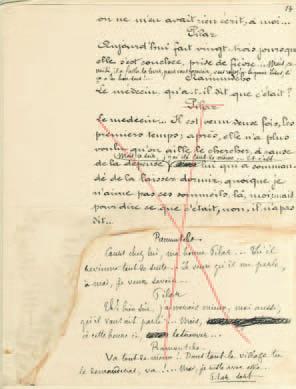 14
on ne m'en avait rien écrit, à moi...
Pilar
Aujourd'hui fait vingt-trois jours que
elle s'est couchée, prise de fièvre... Mais,
Ramuntcho
Le médecin, qu'a-t-il dit que c'était ?
Pilar
Le médecin... Il est venu deux fois, les
premiers temps ; après, elle n'a plus
voulu qu'on aille le chercher, à cause
Mais le soir, j'ai été tout de même... Et c'est
de la dépense lui qui a comman-
dé de la laisser dormir, quoique je
n'aime pas ces sommeils-là, moi, mais
pour dire ce que c'était, non, il n'a pas
dit...
Ramuntcho
Cours chez lui, ma bonne Pilar... Va, il
revienne tout de suite... Je veux qu'il me parle,
à moi, je veux savoir...
Pilar
Eh bien oui, j'aimerais mieux, moi aussi,
qu'il vous ait parlé... Mais,
à cette heure-ci, le trouver...
Ramuntcho
Va tout de même ! Dans tout le village tu
le demanderas, va !... Moi, je reste avec elle...
Pilar sort